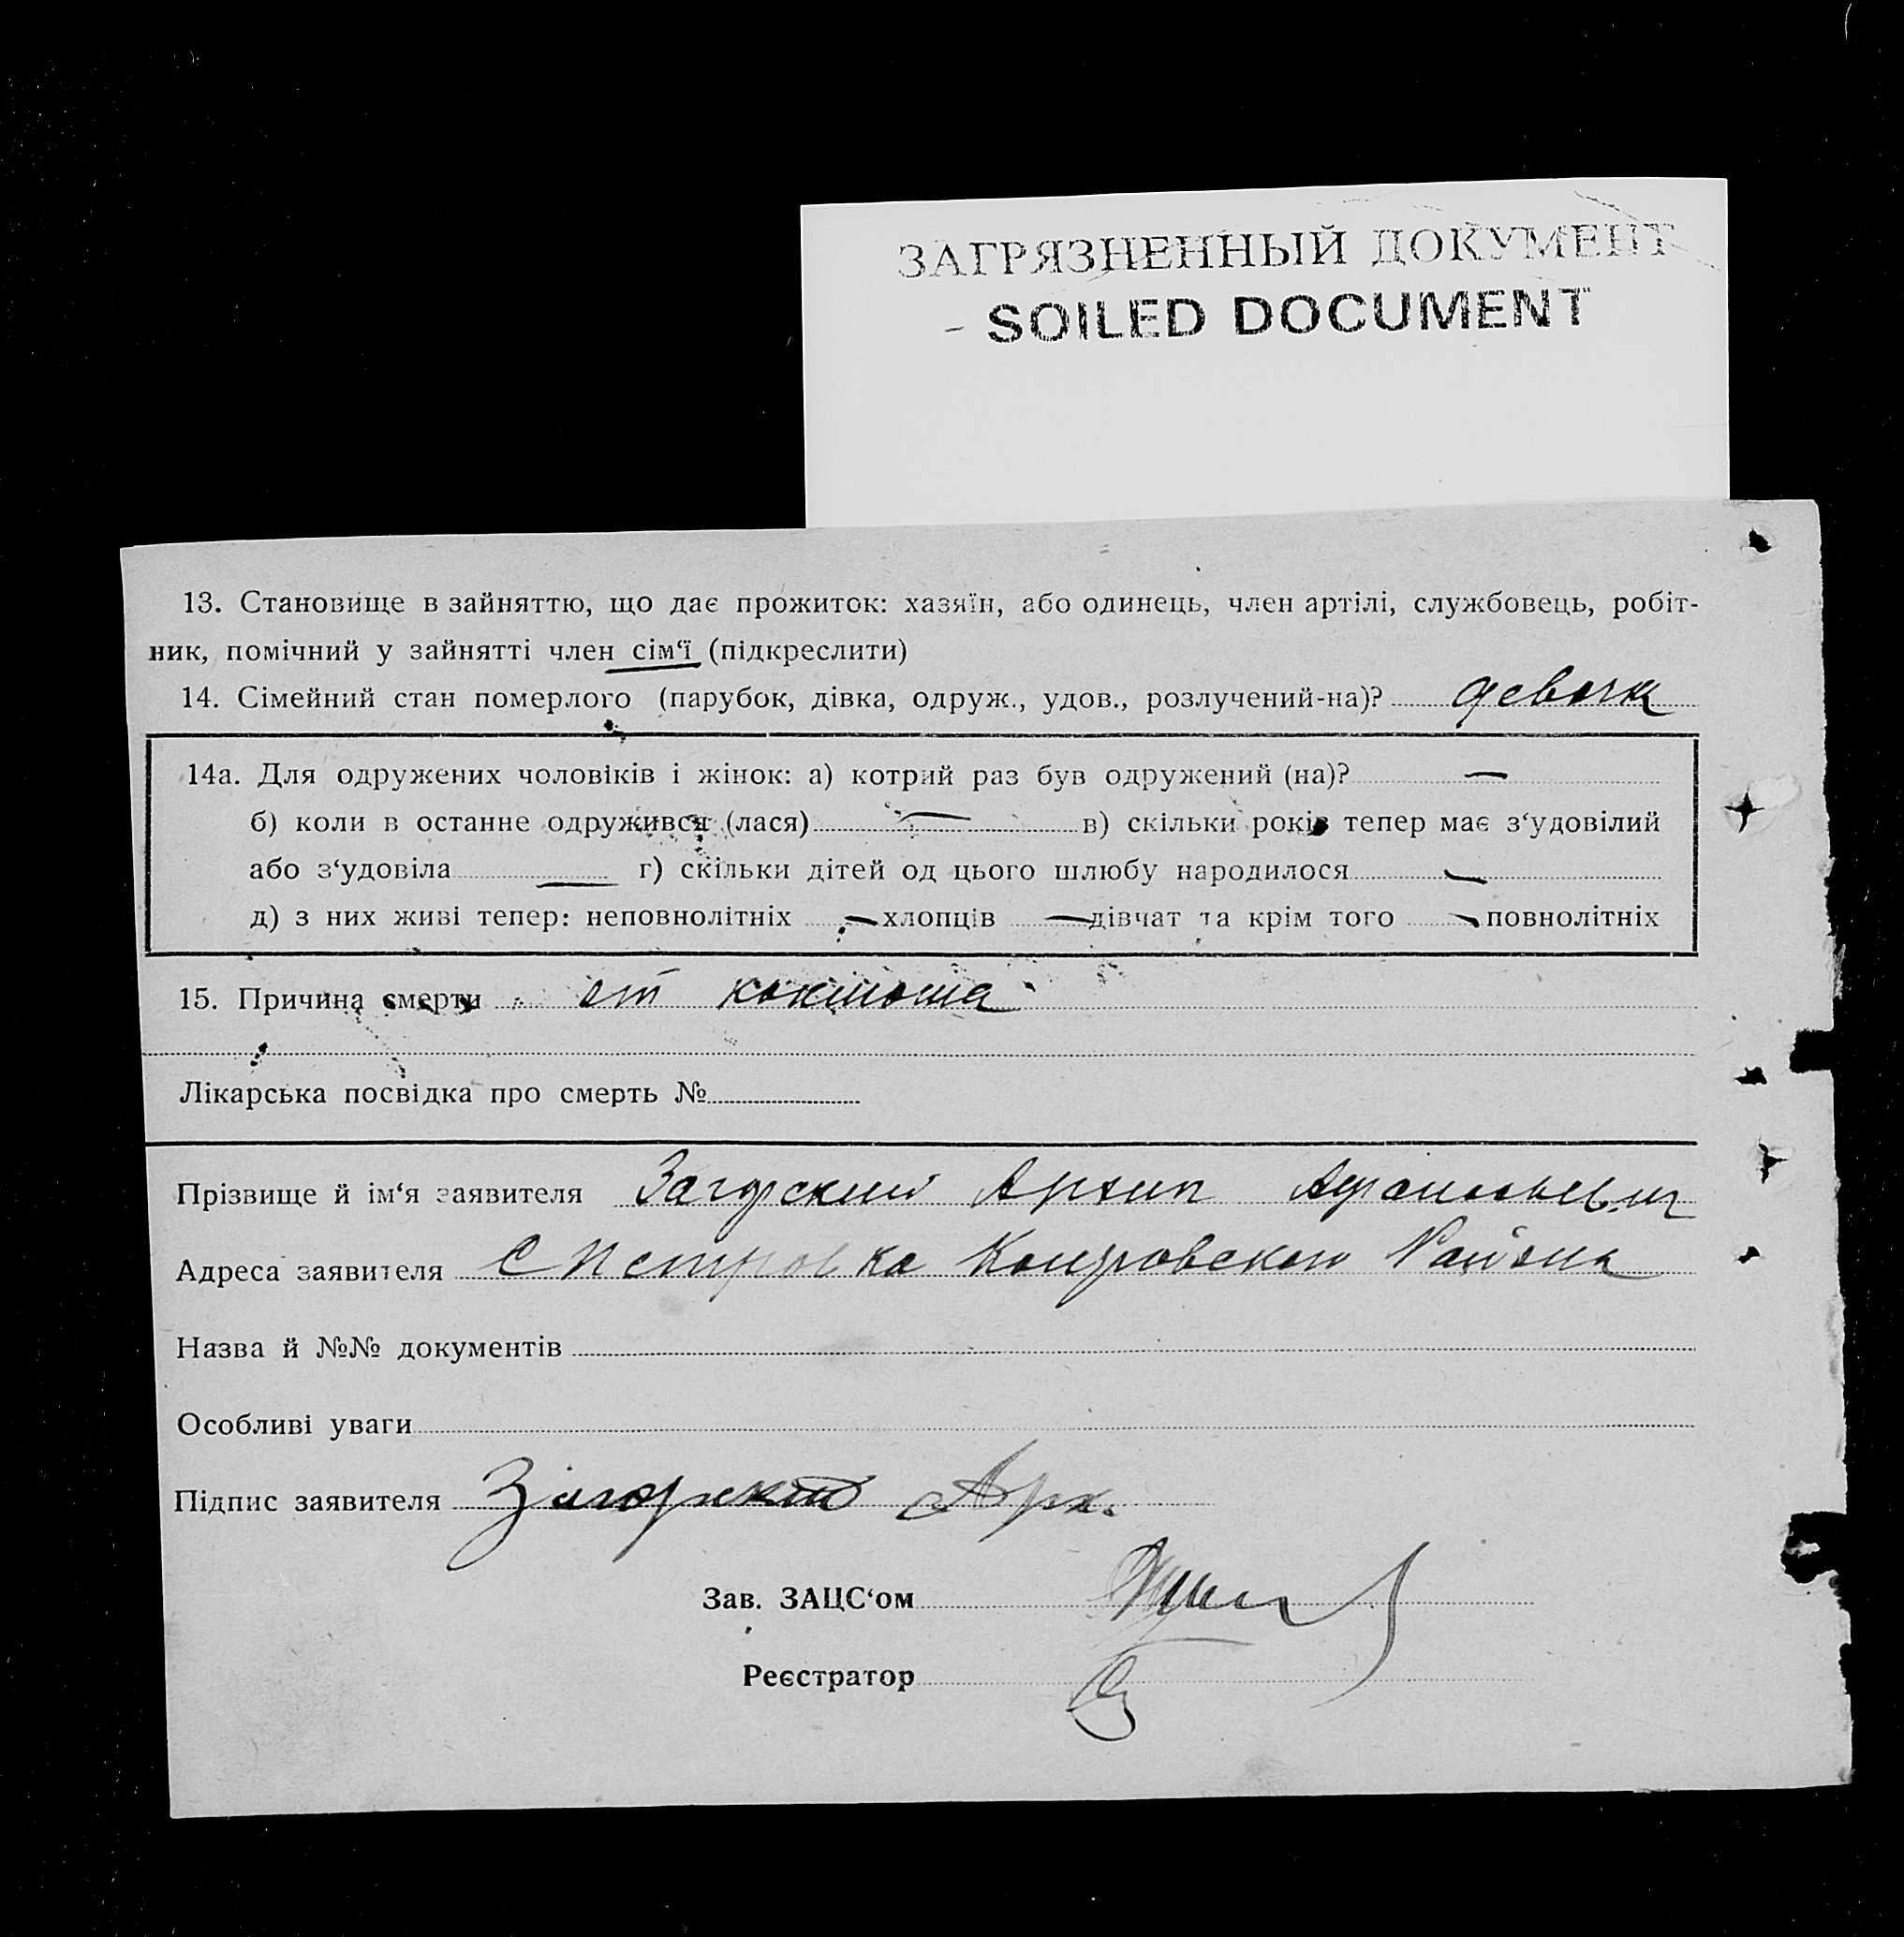 ЗАГРЯЗНЕННЫЙ ДОКУМЕНТ
- SOILED DOCUMENT
13. Становище в зайняттю, що дає прожиток: хазяїн, або одинець, член артілі, службовець, робіт-
ник, помічний у зайнятті член сім‘ї (підкреслити)
14. Сімейний стан померлого (парубок, дівка, одруж., удов., розлучений-на)? девочк
14а. Для одружених чоловіків і жінок: а) котрий раз був одружений (на)? —
б) коли в останнє одружився (лася) — в) скільки років тепер має з‘удовілий
або з‘удовіла — г) скільки дітей од цього шлюбу народилося —
д) з них живі тепер: неповнолітніх — хлопців — дівчат та крім того — повнолітніх
15. Причина смерти от коклюша
Лікарська посвідка про смерть №
Прізвище й ім‘я заявителя Загорский Архип Афанасьевич
Адреса заявителя С Петровка Района
Назва й №№ документів
Особливі уваги
Підпис заявителя Загорский Арх.
Зав. ЗАЦС‘ом
Реєстратор